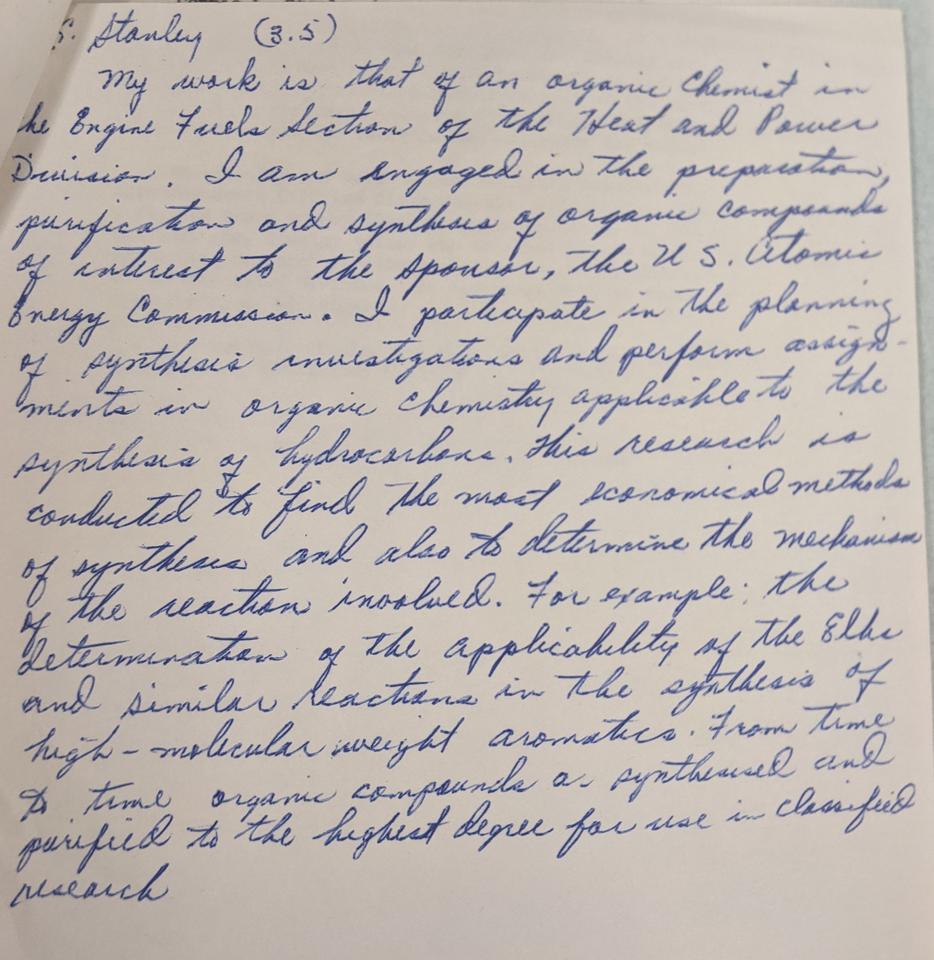 S. Stanley (3.5)
My work is that of an organic Chemist in
he Engine Fuels Section of the Heat and Power
Division. I am engaged in the preparation,
purification and synthesis of organic compounds
of interest to the sponsor, the U S. Atomic
Energy Commission. I participate in the planning
of synthesis investigations and perform assign-
ments in organic chemistry applicable to the
synthesis of hydrocarbons. This research is
conducted to find the most economical methods
of synthesis and also to determine the mechanism
of the reaction involved. For example: the
determination of the applicability of the Elbs
and similar reactions in the synthesis of
high-molecular weight aromatics. From time
to time organic compounds a- synthesised and
purified to the highest degree for use in classified
research